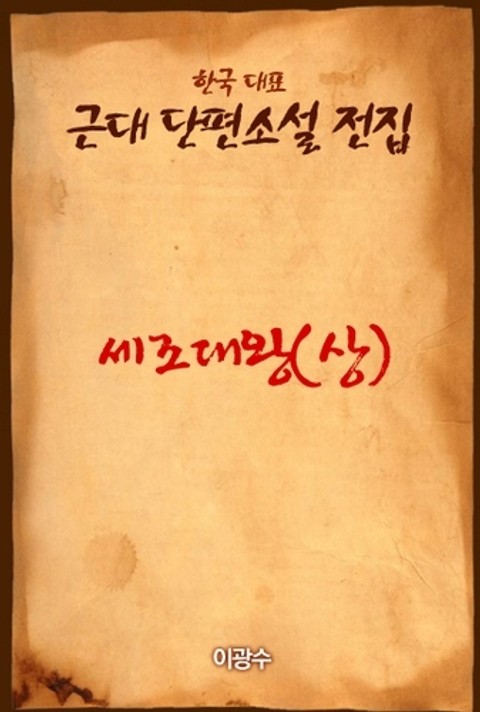 한국 대표
근대 단편소설 전집
세조대왕(상)
이광수